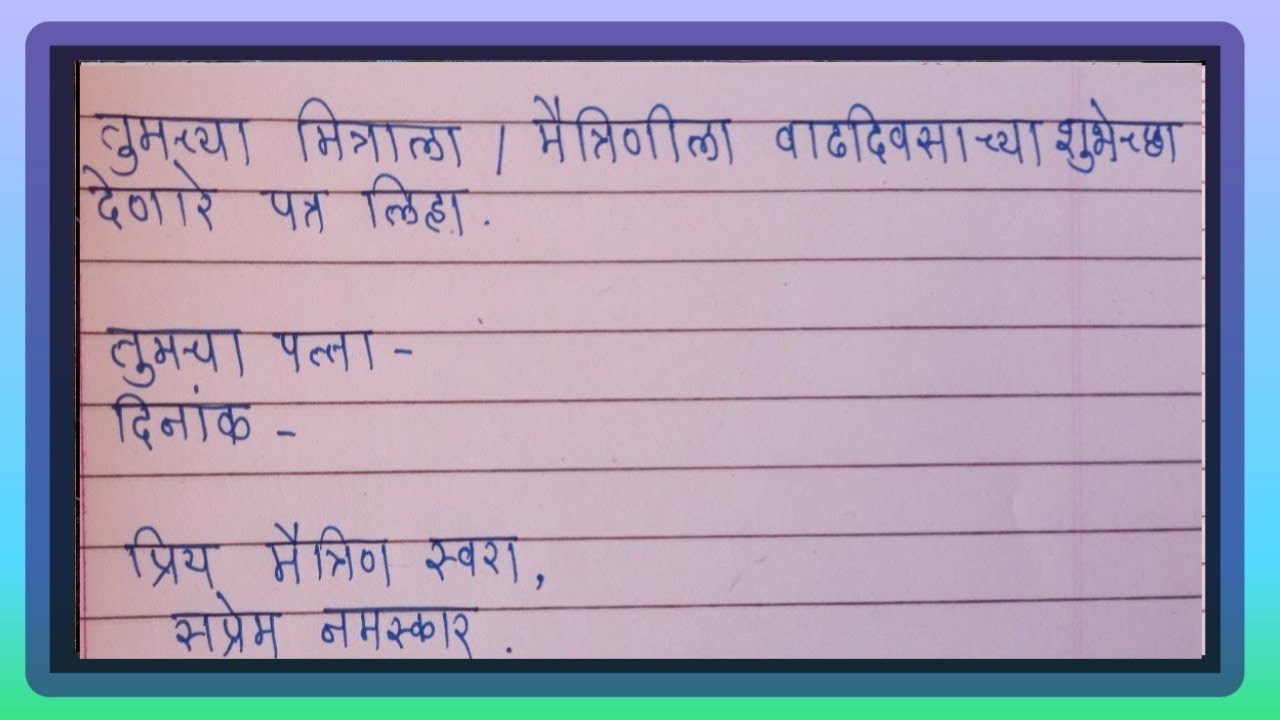 तुमच्या मित्राला / मैत्रिणीला वाढदिवसाच्या शुभेच्छा
देणारे पत्र लिहा.
तुमचा पत्ता -
दिनांक -
प्रिय मैत्रिण स्वरा,
सप्रेम नमस्कार.